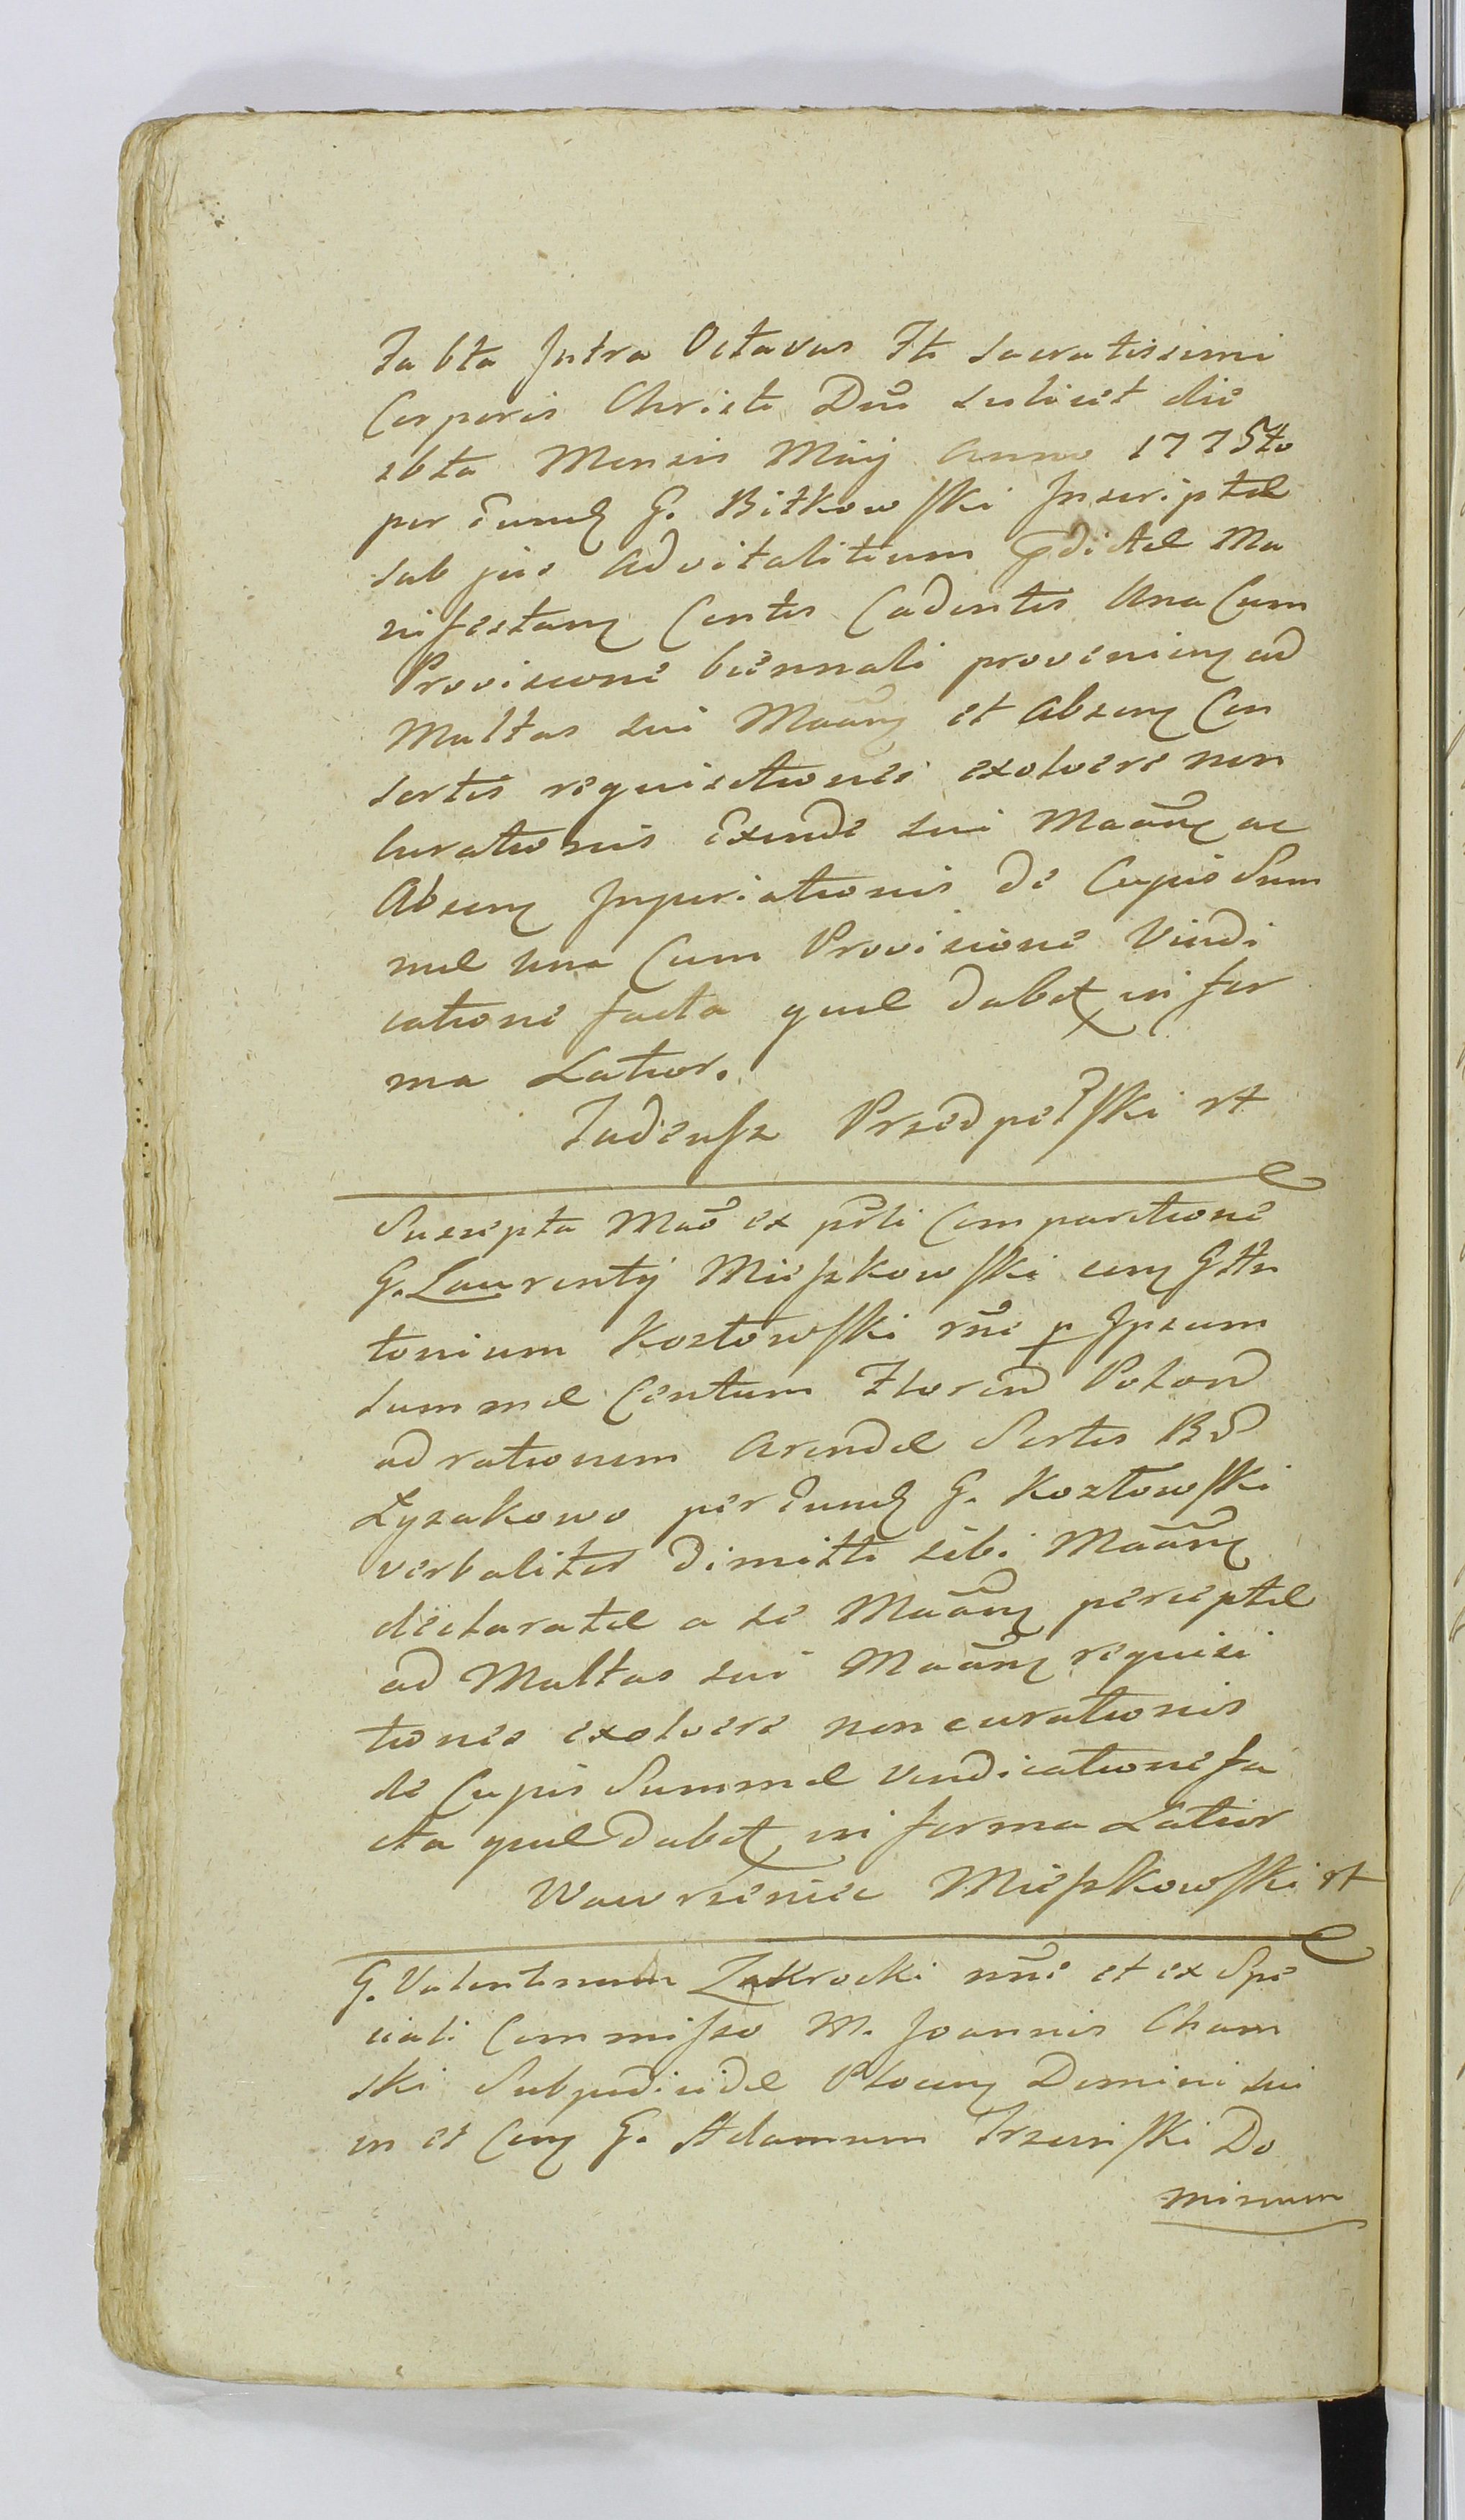 Sabtho Intra Octavas Fti Sacratissimi
Corporis Christi Dni scilicet die
20ta Mensis Maij Anno 1775to
per eund G. Bitkowski Inscriptae
sub jus advitalitium pdictae Ma
nifestan Contis Cadentis Una Cum
Provisione biennali provenien ad
Multas sui Maan et absen Con
sortis requisitiones exolvere non
curationis Exinde sui Maan ac
Absen Injuriationis de Cujus Sum
mae una Cum Provisione Vindi
catione facta quae dabit in for
ma Latior.
Tadeusz Przedpełski rt
Suscepta Mao ex psli Comparitione
G. Laurentij Mieszkowski con G An
tonium Kozłowski rne p Ipsum
summae Centum Floren Polon
ad rationem arendae Sortis B
Łyzakowo per eund G. Kozłowski
verbaliter dimitti sibi Maan
declaratae a se Maan perceptae
ad Multas sui Maan requisi
tiones exolvere non curationis
de Cujus Summae vindicatione fa
cta quae dabit in forma Latior
Wawrzeniec Mieszkowski rt
G. Valentinum Zakrocki nne et ex Spe
ciali Commisso M. Joannis Cham
ski Subjudicidae Plocen Domini sui
in et Con G. Adamum Trzcinski Do
minum